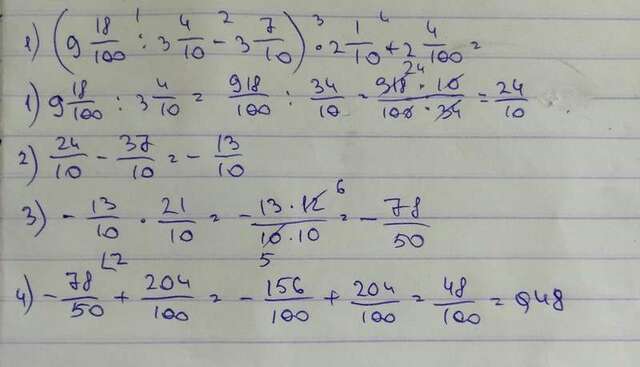 1) (9 18/100 : 3 4/10 - 3 7/10) · 2 1/10 + 2 4/100 =
1) 9 18/100 : 3 4/10 = 918/100 : 34/10 = 918 · 10/100 · 34 = 24/10
2) 24/10 - 37/10 = - 13/10
3) - 13/10 · 21/10 = - 13 · 12/10 · 10 = - 78/50
4) - 78/50 + 204/100 = - 156/100 + 204/100 = 48/100 = 0,48